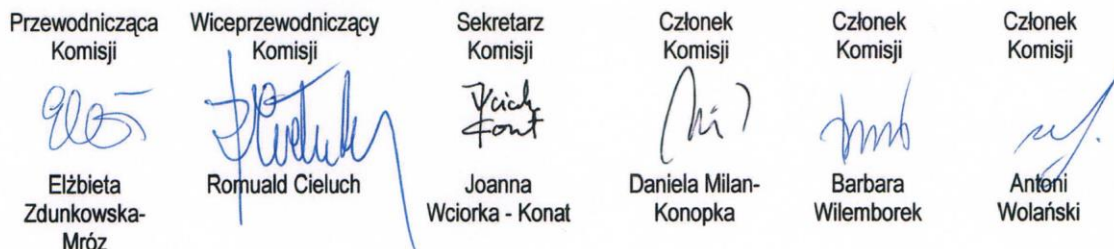 Przewodnicząca Komisji
Elżbieta Zdunkowska-Mróz
Wiceprzewodniczący Komisji
Romuald Cieluch
Sekretarz Komisji
Joanna Wciorka - Konat
Członek Komisji
Daniela Milan-Konopka
Członek Komisji
Barbara Wilemborek
Członek Komisji
Antoni Wolański